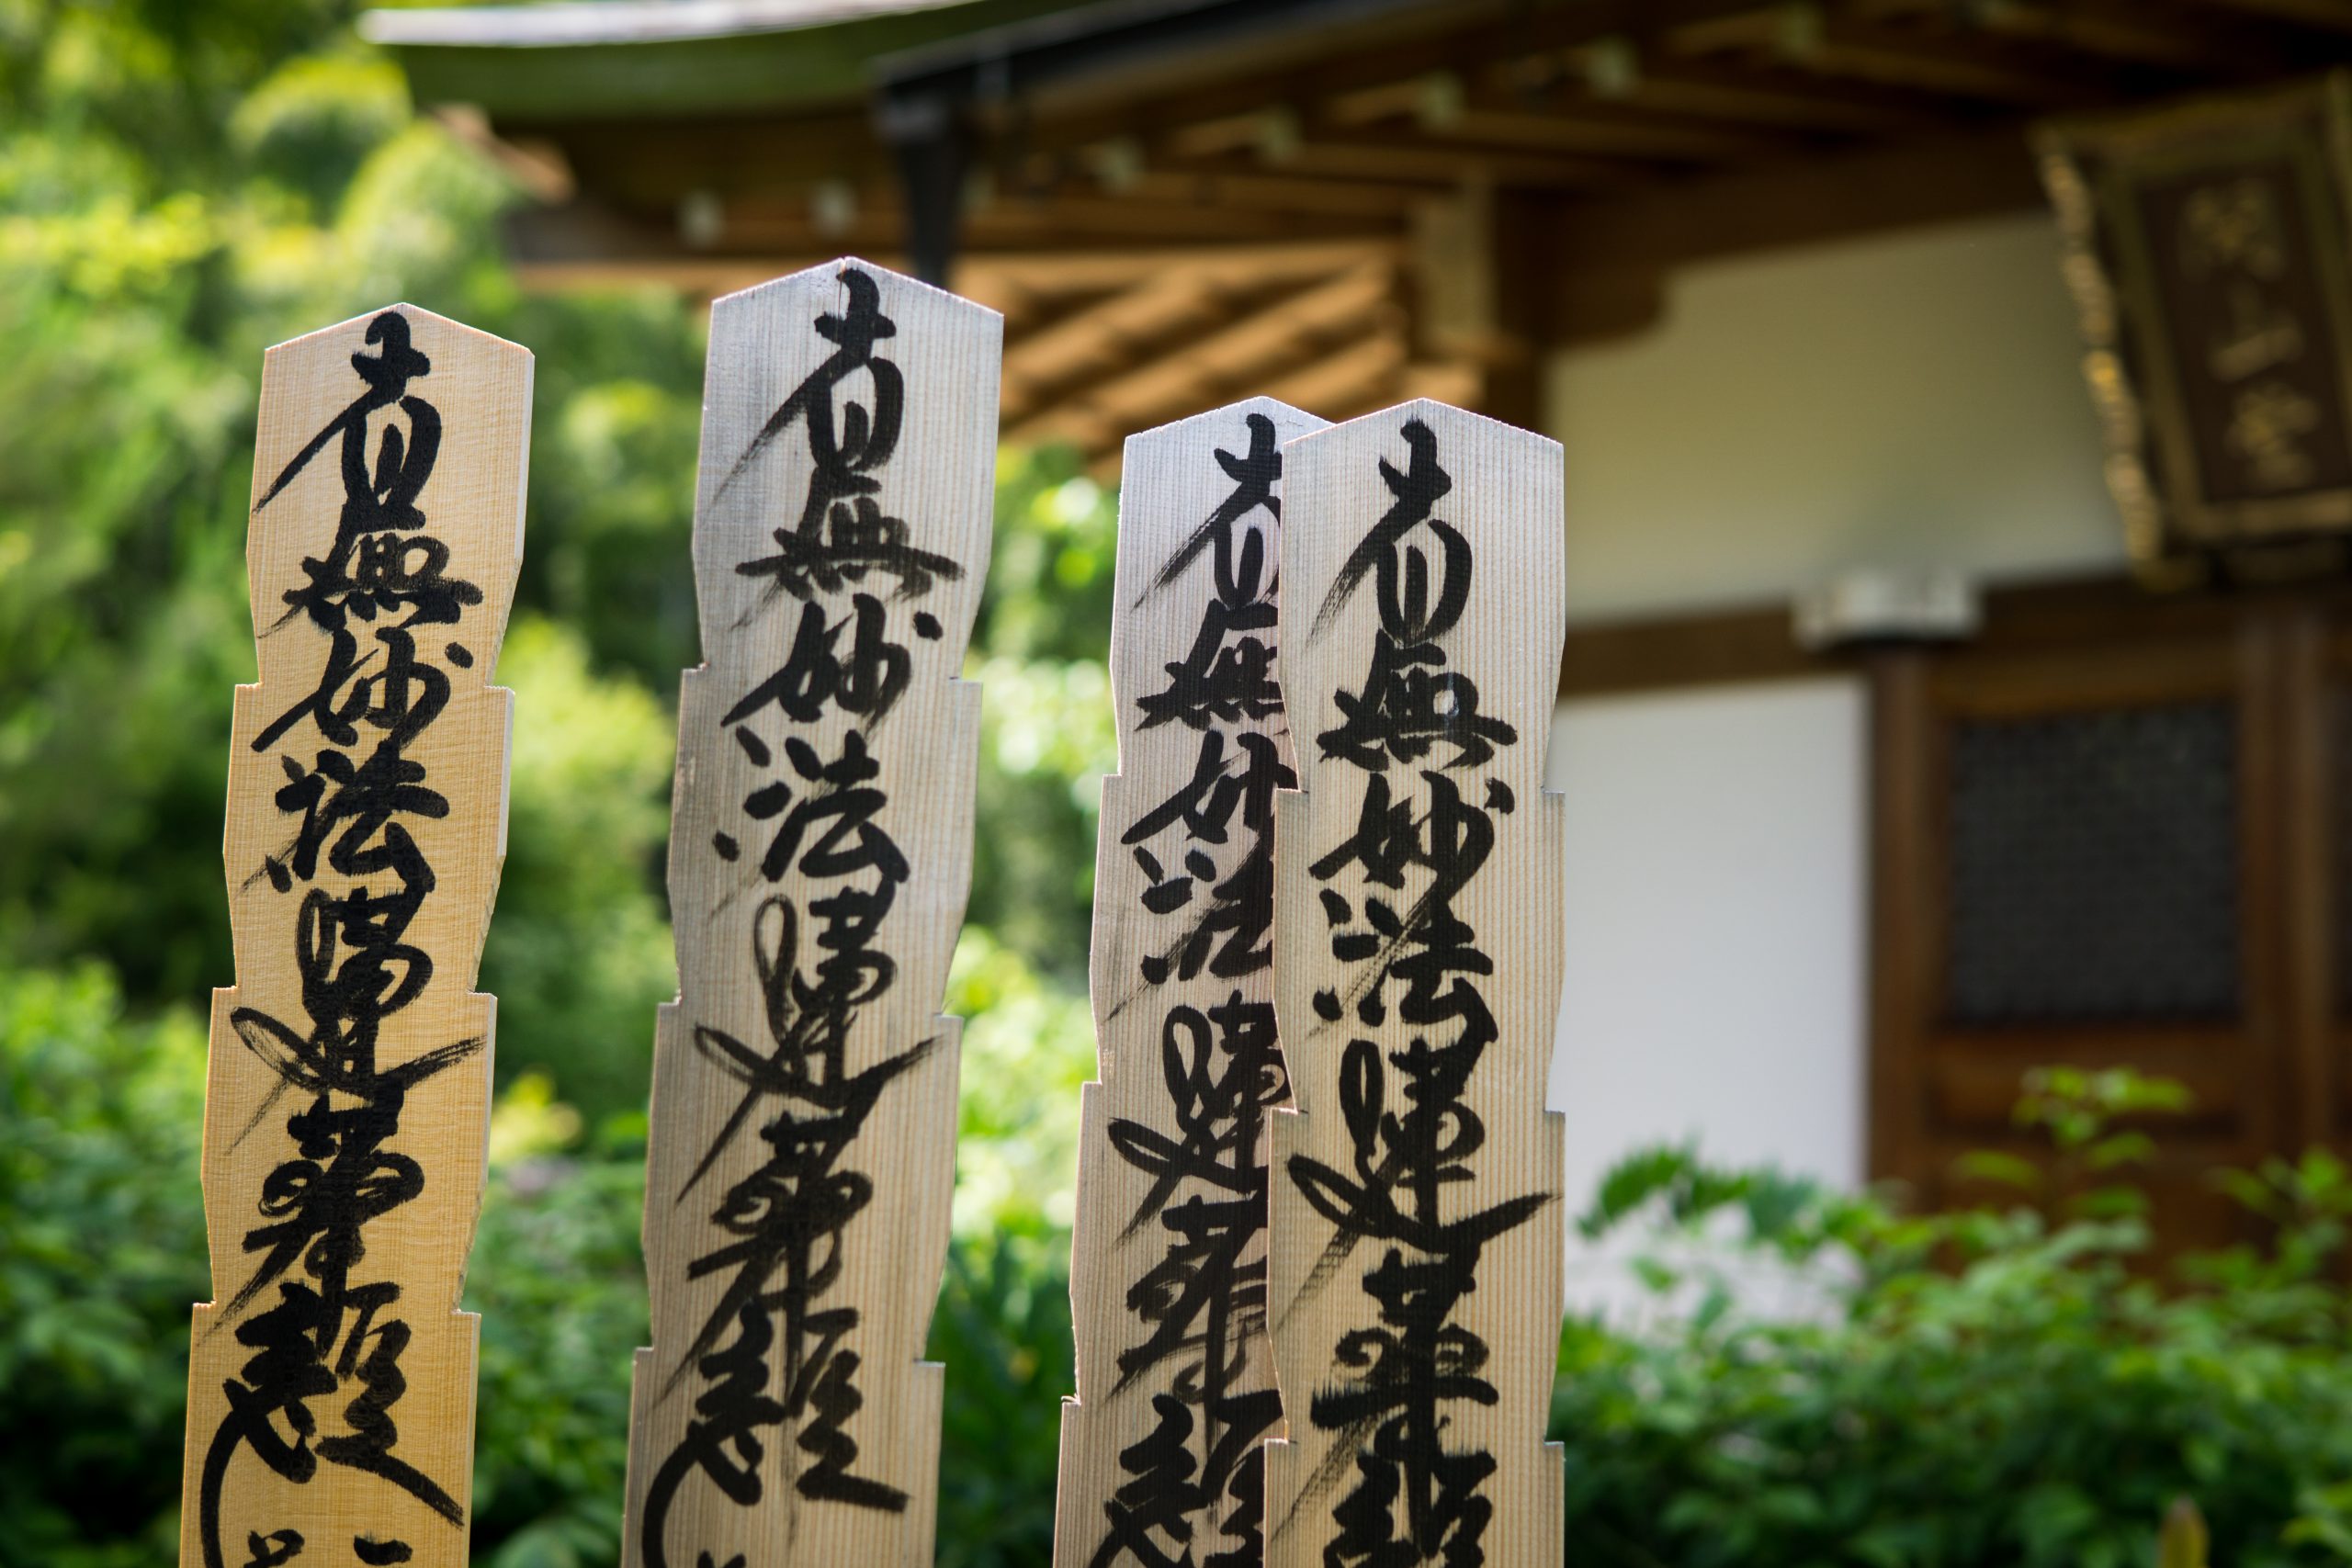 南無妙法蓮華経
南無妙法蓮華経
南無妙法蓮華経
南無妙法蓮華経